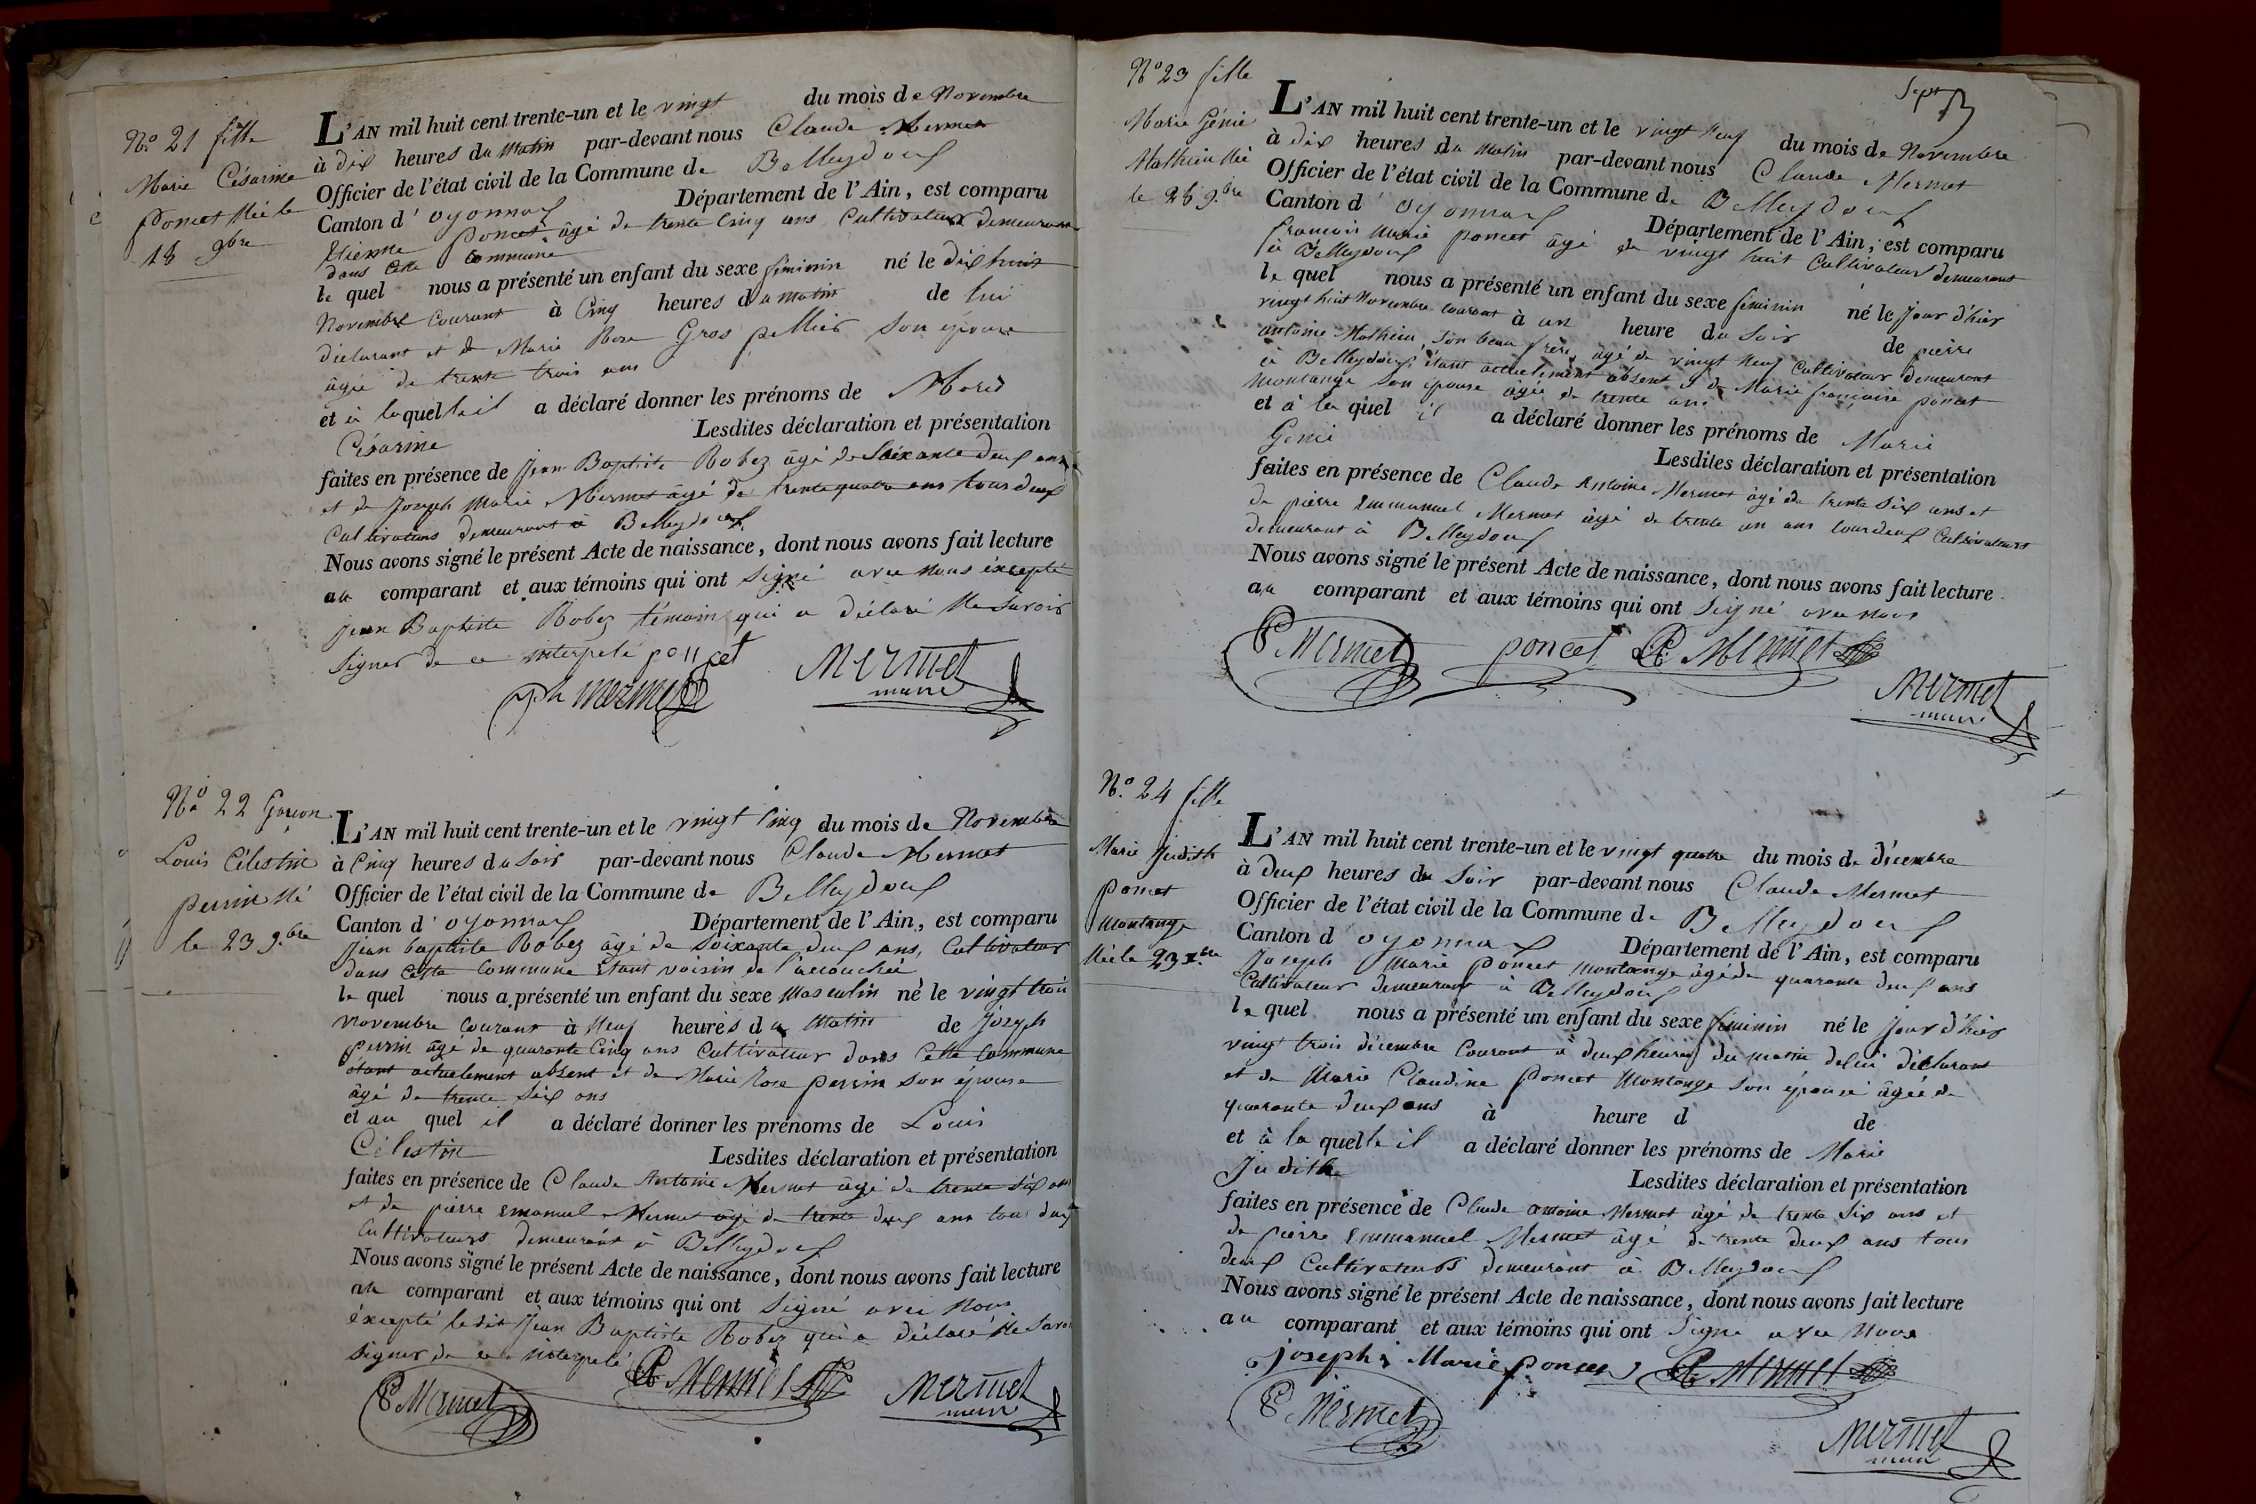 Nº 21 fille
Marie Césarine
Poncet Née le
18 9bre
L'AN mil huit cent trente-un et le vingt du mois de Novembre
à dix heures du matin par-devant nous Claude Mermet
Officier de l'état civil de la Commune de Belleydoux
Canton d'oyonnax Département de l'Ain, est comparu
Etienne Poncet âgé de trente Cinq ans Cultivateur demeurant
dans Cette Commune
le quel nous a présenté un enfant du sexe féminin né le dix huit
Novembre Courant à Cinq heures du matin de lui
déclarant et de Marie Rose Gros pellier Son épouse
âgée de trente trois ans
et à laquelle il a déclaré donner les prénoms de Marie
Césarine Lesdites déclaration et présentation
faites en présence de Jean Baptiste Robez âgé de Soixante deux ans
et de Joseph Marie Mermet âgé de trente quatre ans tous deux
Cultivateurs demeurant à Belleydoux
Nous avons signé le présent Acte de naissance, dont nous avons fait lecture
au comparant et aux témoins qui ont Signé avec nous éxcepté
jean Baptiste Robez témoin qui a déclaré Ne Savoir
Signer de ce interpelé poncet Mermet
jh mermet maire
Nº 22 Garçon
Louis Célestin
perrin Né
le 23 9.bre
L'AN mil huit cent trente-un et le vingt Cinq du mois de Novembre
à Cinq heures du Soir par-devant nous Claude Mermet
Officier de l'état civil de la Commune de Belleydoux
Canton d'oyonnax Département de l'Ain, est comparu
Jean baptiste Robez âgé de Soixante deux ans, Cultivateur
dans Cette Commune Etant voisin de l'accouchée
le quel nous a présenté un enfant du sexe Masculin né le vingt trois
Novembre Courant à Neuf heures du Matin de Joseph
perrin âgé de quarante Cinq ans Cultivateur dans Cette Commune
étant actuelement absent et de Marie Rose perrin Son épouse
âgé de trente Six ans
et au quel il a déclaré donner les prénoms de Louis
Célestin Lesdites déclaration et présentation
faites en présence de Claude Antoine Mermet âgé de trente Six ans
et de pierre Emanuel Mermet âgé de trente deux ans tous deux
Cultivateurs demeurant à Belleydoux
Nous avons signé le présent Acte de naissance, dont nous avons fait lecture
au comparant et aux témoins qui ont Signé avec Nous
éxcepté ledit Jean Baptiste Robez qui a déclaré Ne Savoir
Signer de ce interpelé
P Mermet CA Mermet Mermet
maire
Nº 23 fille
Marie Génie
Mathieu Née
le 28 9.bre
L'AN mil huit cent trente-un et le vingt Neuf du mois de Novembre
à dix heures du matin par-devant nous Claude Mermet
Officier de l'état civil de la Commune de Belleydoux
Canton d'oyonnax Département de l'Ain, est comparu
françois Marie poncet âgé de vingt huit Cultivateur demeurant
à Belleydoux
le quel nous a présenté un enfant du sexe féminin né le Jour d'hier
vingt huit Novembre Courant à un heure du Soir de pierre
antoine Mathieu, Son beau frère, âgé de vingt Neuf Cultivateur demeurant
à Belleydoux, étant actuelement absent et de Marie françoise poncet
Montange Son épouse âgée de trente ans
et à la quel il a déclaré donner les prénoms de Marie
Génie Lesdites déclaration et présentation
faites en présence de Claude Antoine Mermet âgé de trente Six ans et
de pierre Emmanuel Mermet âgé de trente un ans tousdeux Cultivateurs
demeurant à Belleydoux
Nous avons signé le présent Acte de naissance, dont nous avons fait lecture
au comparant et aux témoins qui ont Signé avec nous
P Mermet poncet CA Mermet
Mermet
maire
Nº 24 fille
Marie Judith
Poncet
Montange
Née le 23 xbre
L'AN mil huit cent trente-un et le vingt quatre du mois de décembre
à deux heures du Soir par-devant nous Claude Mermet
Officier de l'état civil de la Commune de Belleydoux
Canton d'oyonnax Département de l'Ain, est comparu
Joseph Marie Poncet Montange âgé de quarante deux ans
Cultivateur demeurant à Belleydoux
le quel nous a présenté un enfant du sexe féminin né le Jour d'hier
vingt trois décembre Courant à deux heures du matin de lui déclarant
et de Marie Claudine Poncet Montange Son épouse âgée de
quarante deux ans à heure d de
et à la quelle il a déclaré donner les prénoms de Marie
Judithe Lesdites déclaration et présentation
faites en présence de Claude antoine Mermet âgé de trente Six ans et
de pierre Emmanuel Mermet âgé de trente deux ans tous
deux Cultivateurs demeurant à Belleydoux
Nous avons signé le présent Acte de naissance, dont nous avons fait lecture
au comparant et aux témoins qui ont Signé avec Nous
joseph Marie poncet CA Mermet
P Mermet
Mermet
maire